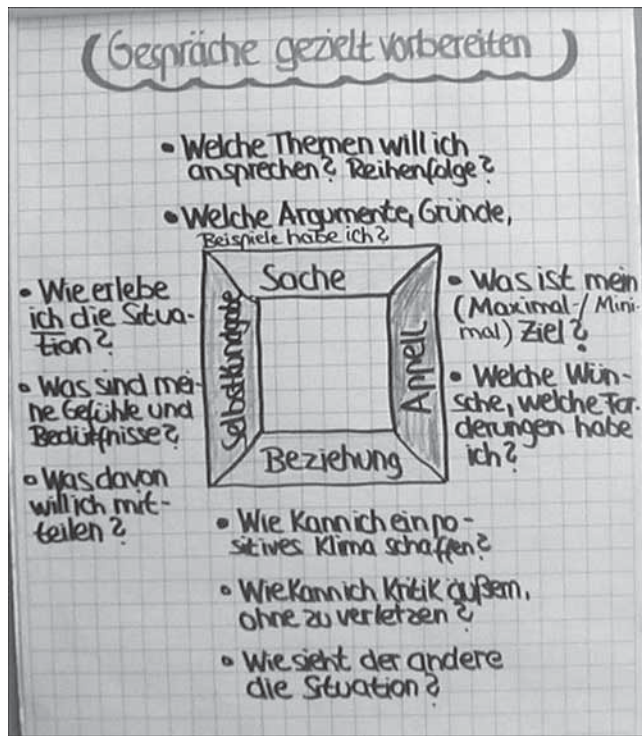 Gespräche gezielt vorbereiten
• Welche Themen will ich
ansprechen? Reihenfolge?
• Welche Argumente, Gründe,
Beispiele habe ich?
Sache
• Wie erlebe
ich die Situa-
tion?
• Was sind mei-
ne Gefühle und
Bedürfnisse?
• Was davon
will ich mit-
teilen?
Selbstkundgabe
Appell
• Was ist mein
(Maximal-/Mini-
mal) Ziel?
• Welche Wün-
sche, welche For-
derungen habe
ich?
Beziehung
• Wie kann ich ein po-
sitives Klima schaffen?
• Wie kann ich Kritik äußern,
ohne zu verletzen?
• Wie sieht der andere
die Situation?